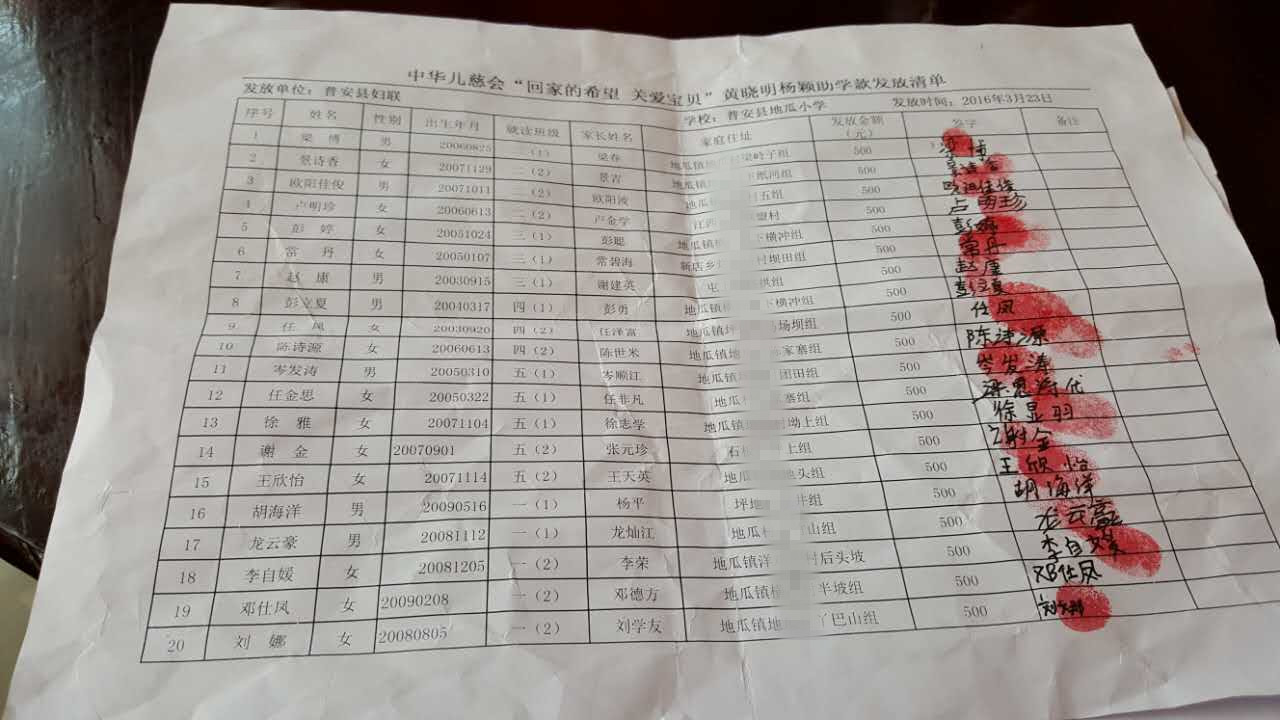 中华儿慈会“回家的希望 关爱宝贝”黄晓明杨颖助学款发放清单
发放单位：普安县妇联 学校：普安县地瓜小学 发放时间：2016年3月23日
序号 姓名 性别 出生年月 就读班级 家长姓名 家庭住址 发放金额（元） 签字 备注
1 梁博 男 20060825 二（1） 梁春 地瓜镇地 梁岭子组 500
2 景诗香 女 20071129 二（2） 景吉 地瓜镇 下纸河组 500 景诗香
3 欧阳佳俊 男 20071011 二（2） 欧阳波 地瓜镇 五组 500 欧阳佳俊
4 卢明珍 女 20060613 二（2） 卢金学 江西 盟村 500 卢明珍
5 彭婷 女 20051024 三（1） 彭聪 地瓜镇 下横冲组 500 彭婷
6 常丹 女 20050107 三（1） 常碧海 新店乡 村坝田组 500 常丹
7 赵康 男 20030915 三（1） 谢建英 屯 组 500 赵康
8 彭立夏 男 20040317 四（1） 彭勇 地瓜镇 下横冲组 500 彭立夏
9 任凤 女 20030920 四（2） 任泽富 地瓜镇坪 场坝组 500 任凤
10 陈诗源 女 20060613 四（2） 陈世米 地瓜镇地 陈家寨组 500 陈诗源
11 岑发涛 男 20050310 五（1） 岑顺江 地瓜镇 团田组 500 岑发涛
12 任金思 女 20050322 五（1） 任非凡 地瓜 寨组 500
13 徐雅 女 20071104 五（1） 徐志学 地瓜镇 坳上组 500 徐显羽
14 谢金 女 20070901 五（2） 张元珍 石 上组 500 谢金
15 王欣怡 女 20071114 五（2） 王天英 地瓜 头组 500 王欣怡
16 胡海洋 男 20090516 一（1） 杨平 坪地 组 500 胡海洋
17 龙云豪 男 20081112 一（1） 龙灿江 地瓜 山组 500 龙云豪
18 李自媛 女 20081205 一（2） 李荣 地瓜镇洋 村后头坡 500 李自媛
19 邓仕凤 女 20090208 一（2） 邓德方 地瓜镇 半坡组 500 邓仕凤
20 刘娜 女 20080805 一（2） 刘学友 地瓜镇地 丫巴山组 500